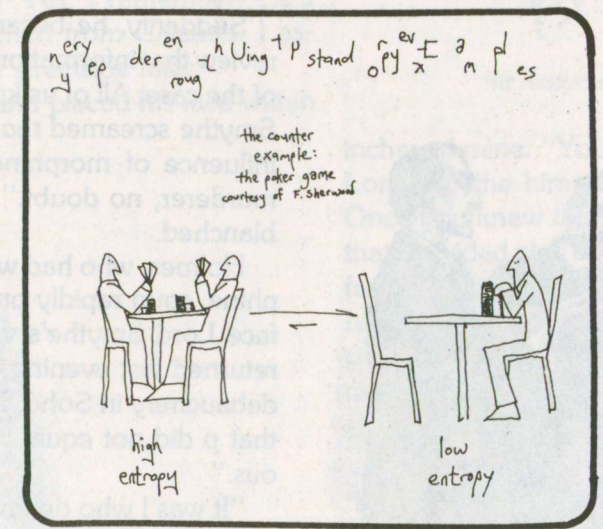 ery der en h Uing t p stand r py ev E a p l
y ep roug o x m es
the counter
example:
the poker game
courtesy of F. Sherwood
high
entropy
low
entropy